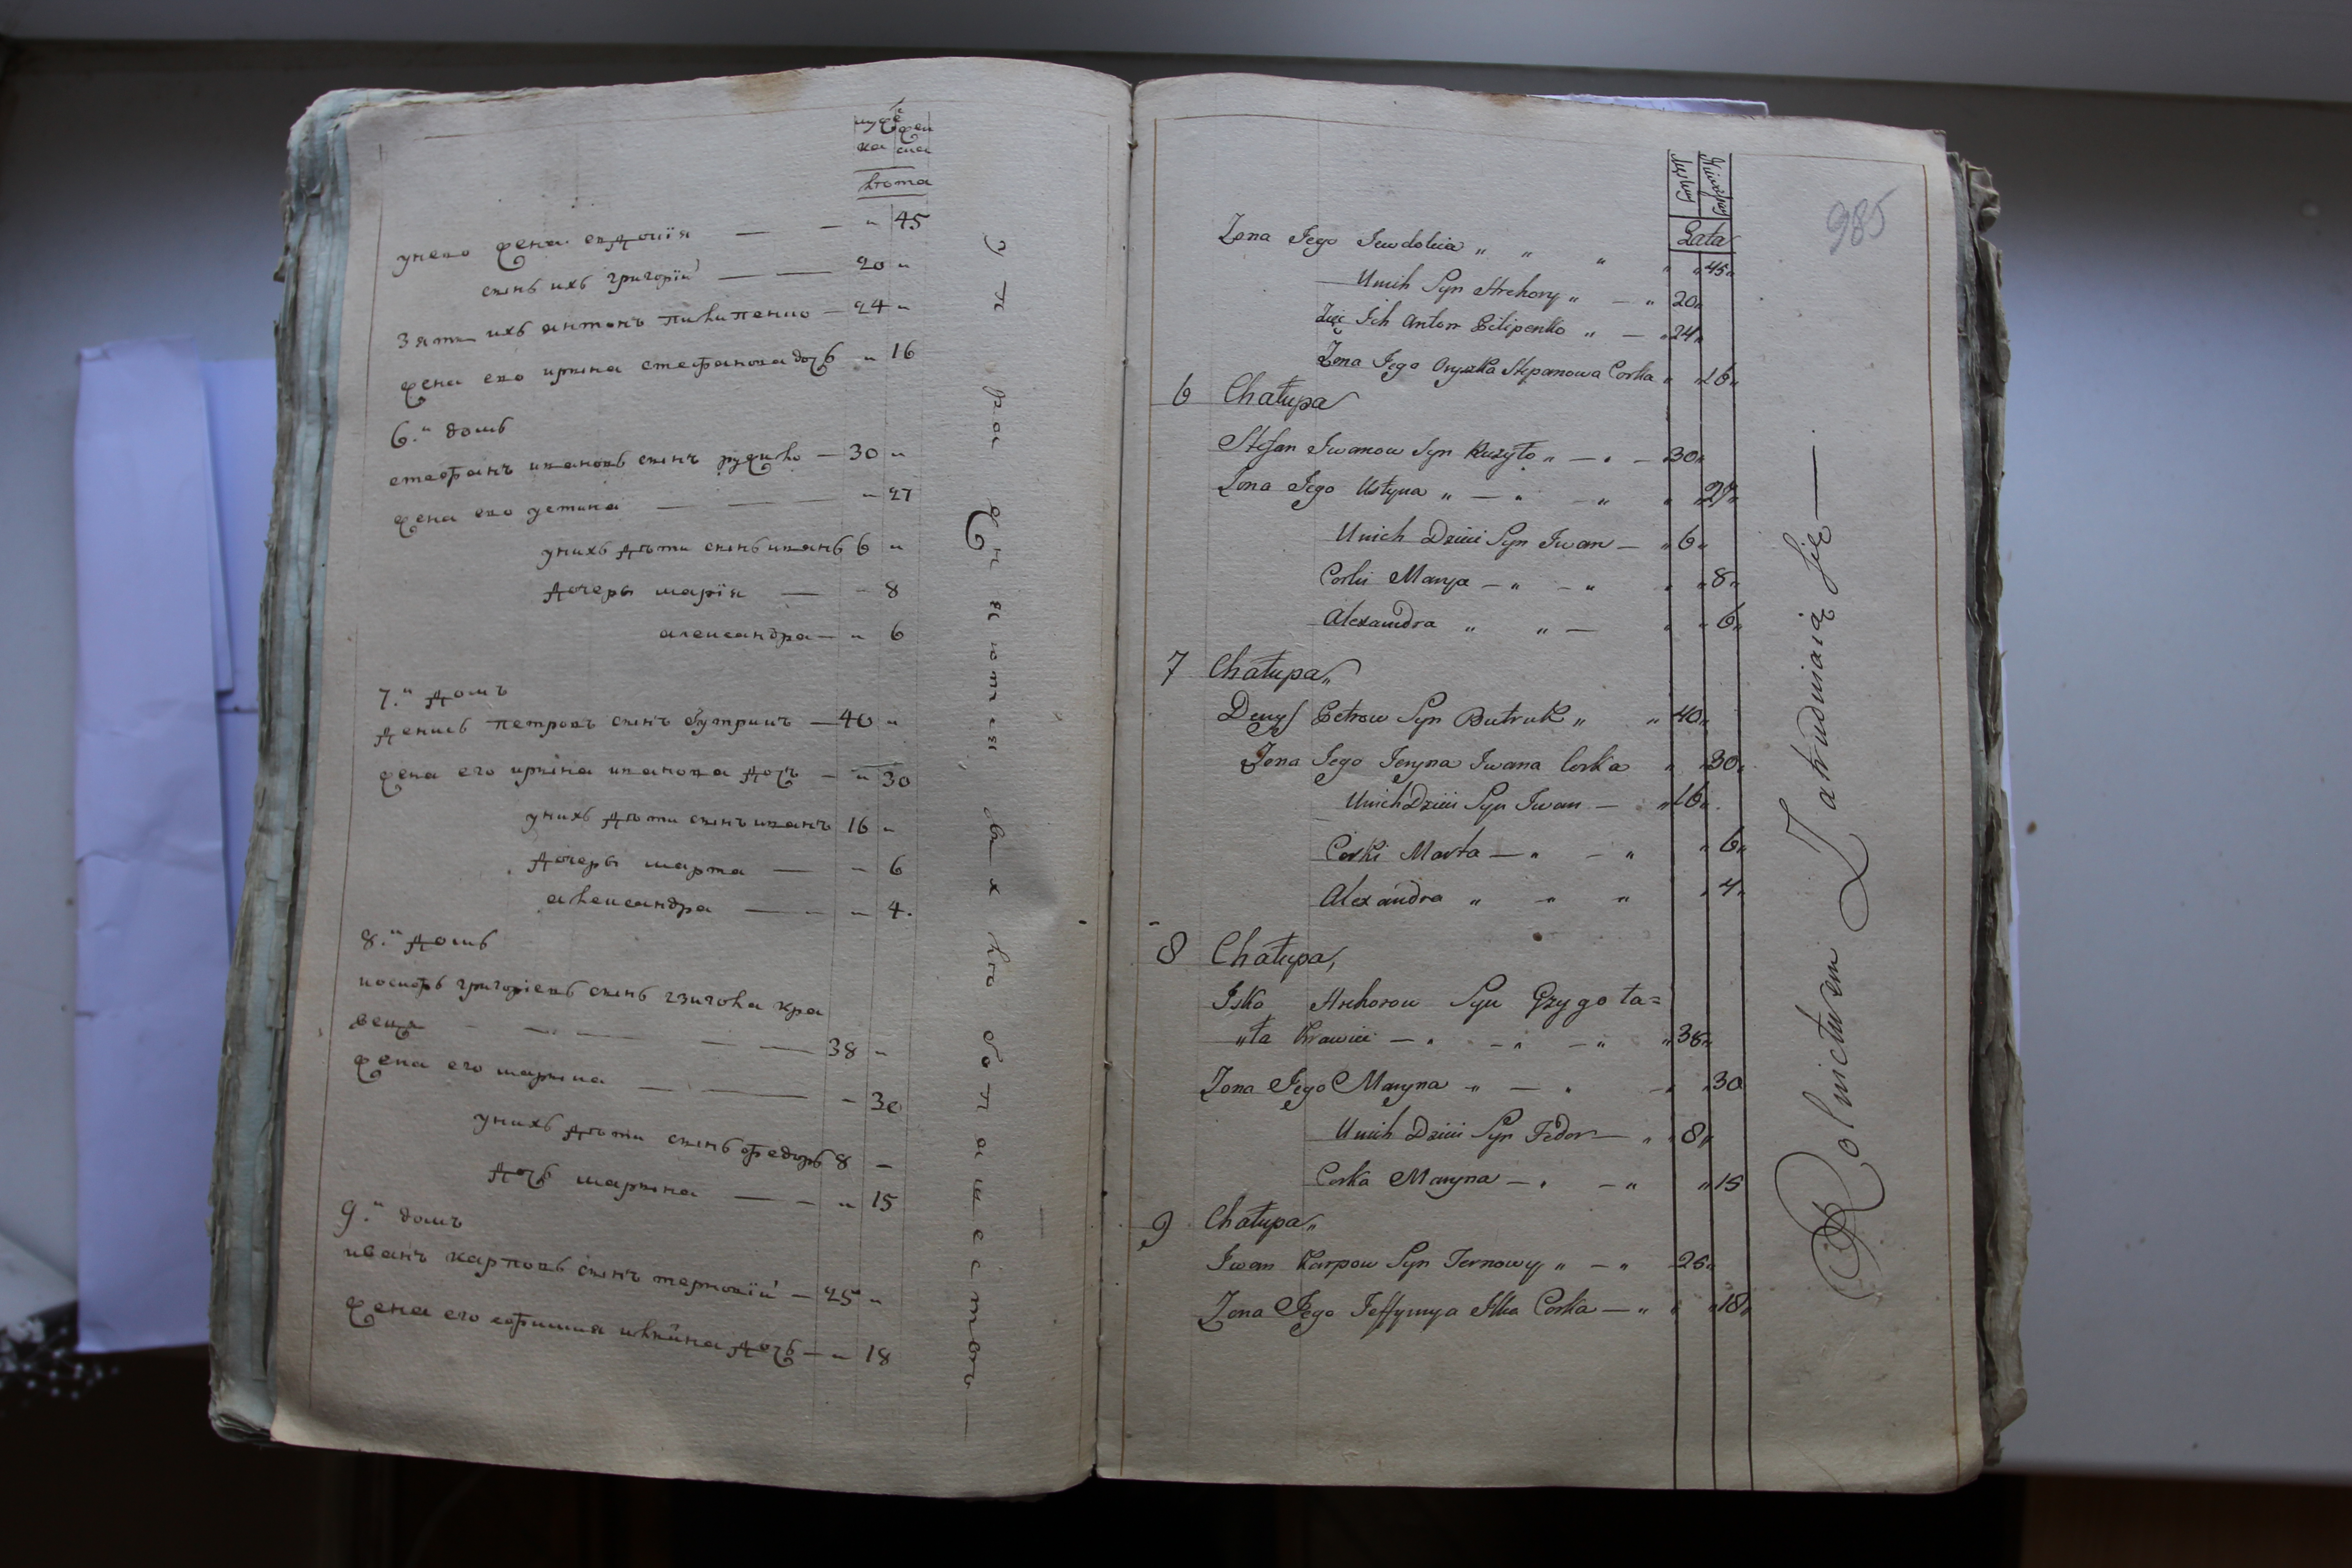 муже женска
лѣта
унего жена евдокія — — „ 45
сынъ ихъ григорій — — 20 „
Зять ихъ антонъ пилипенко — 24 „
жена его ирына стефанова дочь „ 16
6.й домъ
стефанъ ивановъ сынъ ружило — 30 „
жена его устина — — „ 27
унихъ дѣти сынъ иванъ 6 „
дочеры марія — – 8
александра — „ 6
7.й домъ
денисъ петровъ сынъ бутрикъ — 40 „
жена его ирына иванова дочъ — „ 30
унихъ дѣти сынъ иванъ 16 „
дочеры марта — – 6
александра — – – 4.
8.й домъ
иосифъ григоріевъ сынъ гзигола кра
вецъ — — — 38 „
жена его марына — — – 30
унихъ дѣти сынъ федоръ 8 –
дочь марына — – „ 15
9.й домъ
иванъ карповъ сынъ терновій — 25 „
жена его ефимия илкина дочь — „ 18
упражняются въ хлѣбопашествѣ —
985
Męskey Żeńskey
Lata
Zona Jego Jewdokia „ „ „ „ „ 45 „
Unich Syn Hrehory „ — „ 20 „
Zięć Ich Anton Pilipenko „ — „ 24 „
Zona Jego Oryszka Stepanowa Corka „ „ 16 „
6 Chałupa
Stefan Iwanow Syn Rużyło „ — „ — 30 „
Zona Jego Ustyna „ — „ — „ „ „ 27 „
Unich Dzieci Syn Iwan — „ 6 „
Corki Marya — „ — „ „ „ 8 „
Alexandra „ „ — „ „ 6 „
7 Chałupa „
Denys Petrow Syn Butruk „ „ 40 „
Zona Jego Jeryna Iwana Corka „ „ 30 „
Unich Dzieci Syn Iwan — „ 16 „
Corki Marta — „ — „ „ 6 „
Alexandra „ „ „ „ 4 „
8 Chałupa,
Isko Hrehorow Syn Gzygo ła=
„ła Krawiec — „ — „ — „ „ 38 „
Zona Jego Maryna „ — „ — „ „ 30
Unich Dzieci Syn Fedor — „ „ 8 „
Corka Maryna — „ — „ „ 15
9 Chałupa „
Iwan Karpow Syn Ternowy „ — „ 25 „
Zona Jego Jeffymya Ilka Corka — „ „ „ 18 „
Rolnictwem Zatrudniaią się —